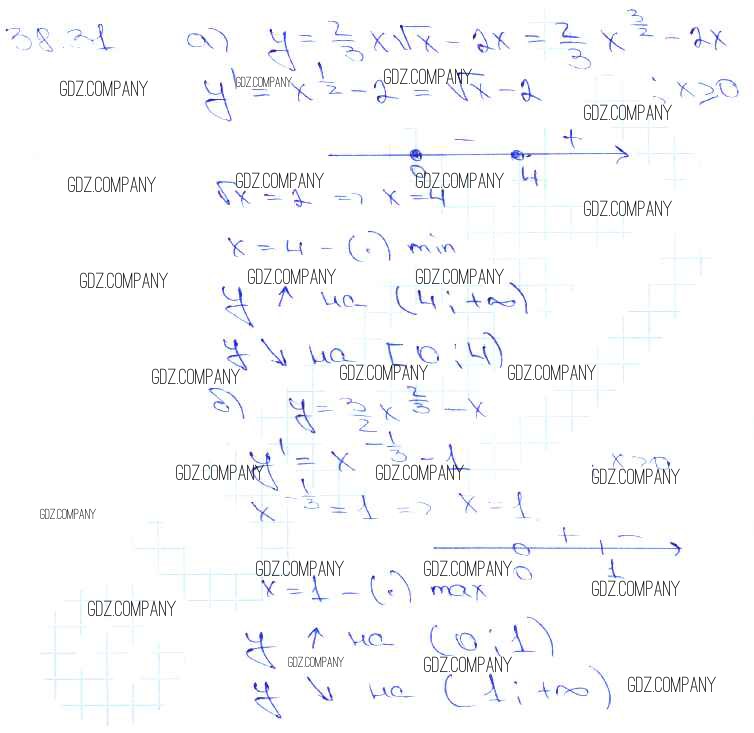 38.31 а) y = 2/3 x√x - 2x = 2/3 x^(3/2) - 2x
GDZ.COMPANY GDZ.COMPANY GDZ.COMPANY
y' = x^(1/2) - 2 = √x - 2 ; x ≥ 0
GDZ.COMPANY
- +
0 4
GDZ.COMPANY GDZ.COMPANY GDZ.COMPANY
√x = 2 => x = 4
GDZ.COMPANY
x = 4 - (·) min
GDZ.COMPANY GDZ.COMPANY GDZ.COMPANY
y ↑ на (4; +∞)
y ↓ на [0; 4)
GDZ.COMPANY GDZ.COMPANY GDZ.COMPANY
б) y = 3/2 x^(2/3) - x
y' = x^(-1/3) - 1 ; x > 0
GDZ.COMPANY GDZ.COMPANY GDZ.COMPANY
x^(-1/3) = 1 => x = 1
GDZ.COMPANY
+ -
0 1
GDZ.COMPANY GDZ.COMPANY GDZ.COMPANY
x = 1 - (·) max
GDZ.COMPANY
y ↑ на (0; 1)
GDZ.COMPANY GDZ.COMPANY
y ↓ на (1; +∞)
GDZ.COMPANY